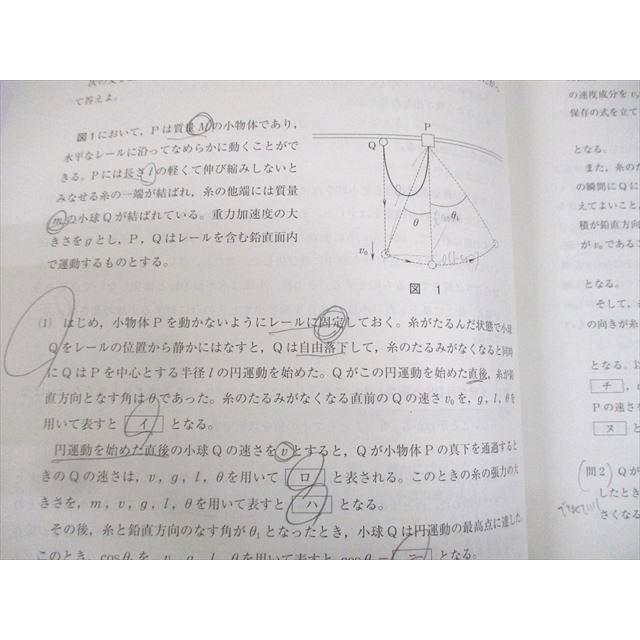 て答えよ。
図1において，Pは質量Mの小物体であり，
水平なレールに沿ってなめらかに動くことがで
きる。Pには長さlの軽くて伸び縮みしないと
みなせる糸の一端が結ばれ，糸の他端には質量
mの小球Qが結ばれている。重力加速度の大
きさをgとし，P，Qはレールを含む鉛直面内
で運動するものとする。
P
Q
θ
θ₁
v₀
図 1
(1) はじめ，小物体Pを動かないようにレールに固定しておく。糸がたるんだ状態で小球
Qをレールの位置から静かにはなすと，Qは自由落下して，糸のたるみがなくなると同時
にQはPを中心とする半径lの円運動を始めた。Qがこの円運動を始めた直後，糸が鉛
直方向となす角はθであった。糸のたるみがなくなる直前のQの速さv₀を，g，l，θを
用いて表すと イ となる。
円運動を始めた直後の小球Qの速さをvとすると，Qが小物体Pの真下を通過すると
きのQの速さは，v，g，l，θを用いて ロ と表される。このときの糸の張力の大
きさを，m，v，g，l，θを用いて表すと ハ となる。
その後，糸と鉛直方向のなす角がθ₁となったとき，小球Qは円運動の最高点に達した。
このとき，cosθ₁を，v，g，l，θを用いて表すと，cosθ₁＝ ニ となる。
の速度成分を
保存の式を立て
となる。
また，糸のた
の瞬間にQに
えてよいこと，
積が鉛直方向
がv₀であるこ
となる。
そして，
の向きが糸
となる。以
チ ，
Pの速さ
ヌ と
(問2) Qが
したとき
さくなる